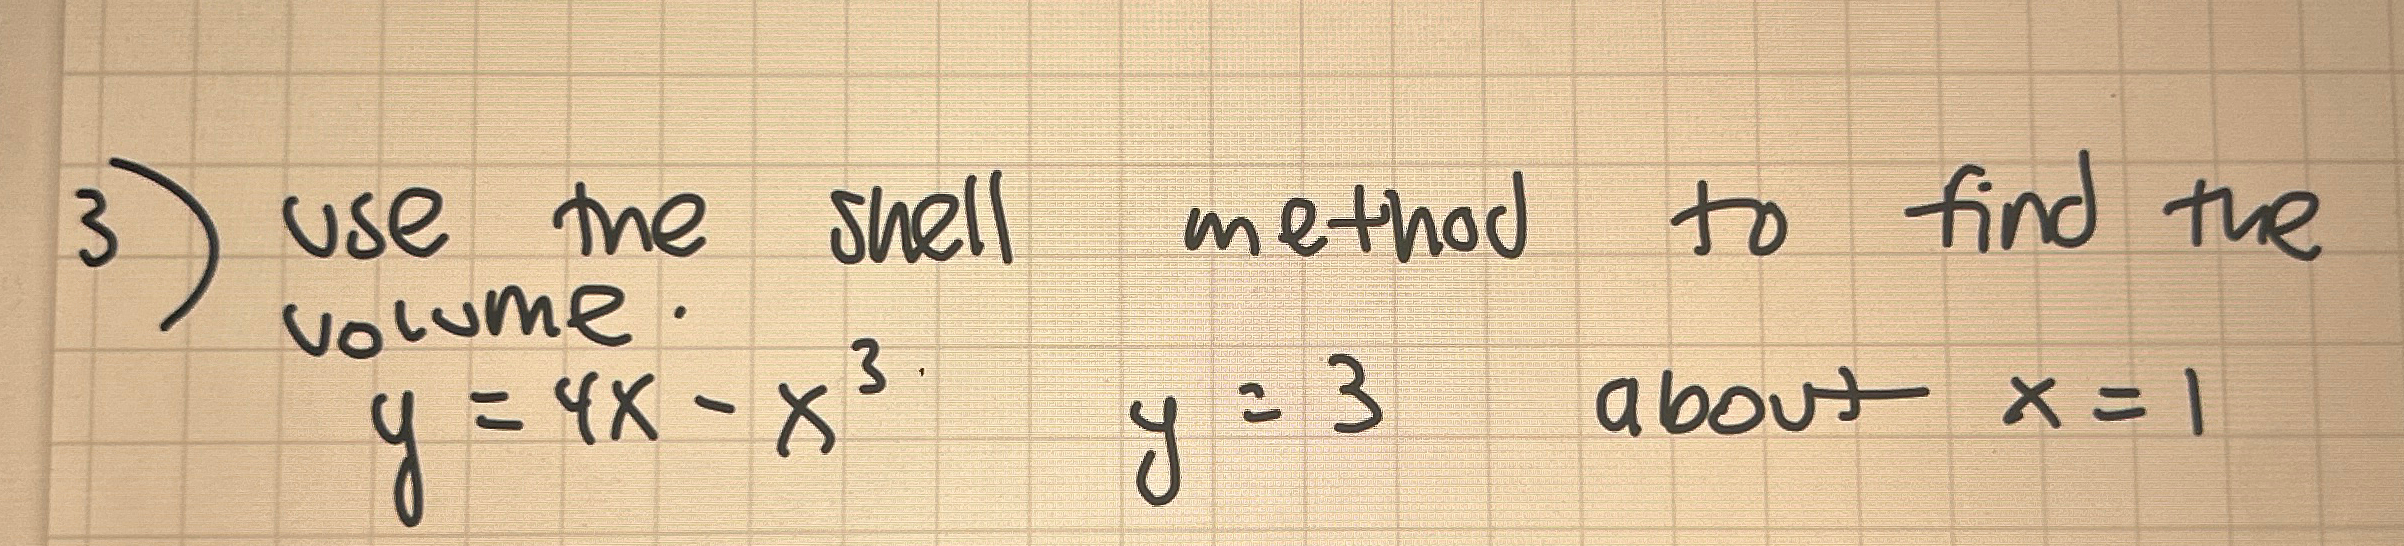 3) use the shell method to find the
volume.
y = 4x - x³ y = 3 about x = 1